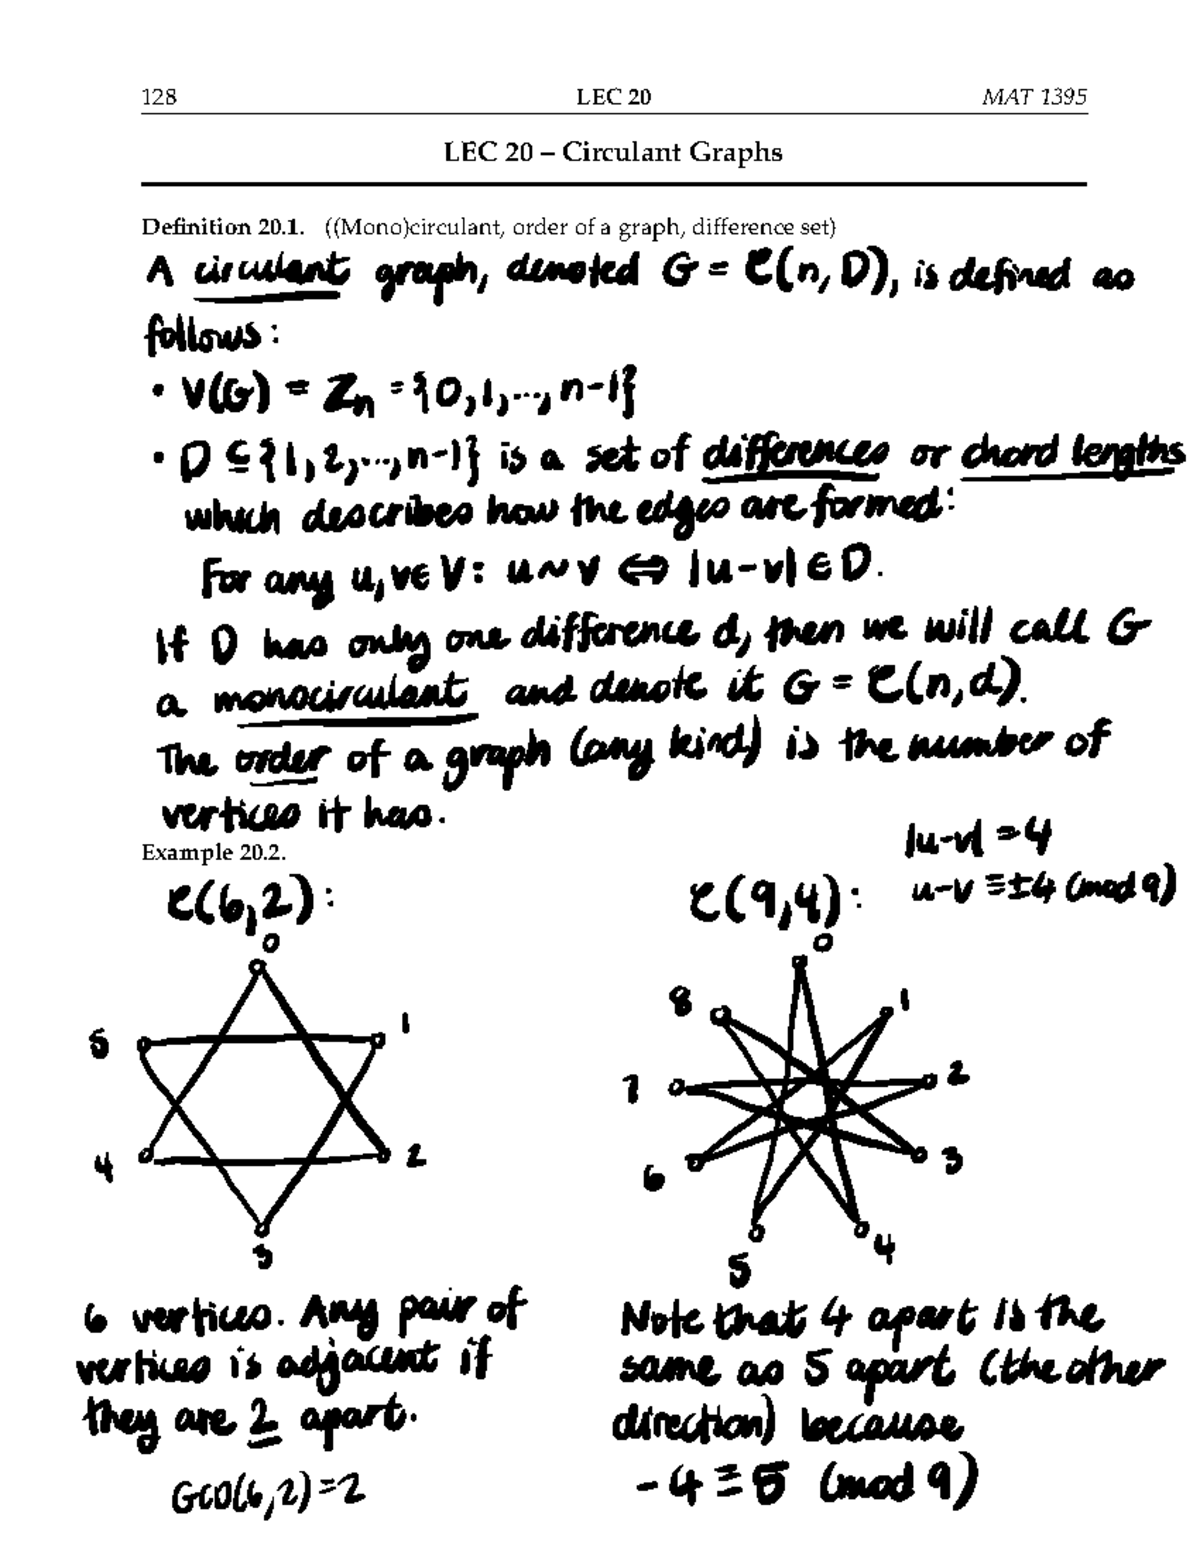 128 LEC 20 MAT 1395
LEC 20 – Circulant Graphs
Definition 20.1. ((Mono)circulant, order of a graph, difference set)
A circulant graph, denoted G = C(n, D), is defined as
follows:
• V(G) = Zn = {0,1,...,n-1}
• D ⊆ {1,2,...,n-1} is a set of differences or chord lengths
which describes how the edges are formed:
For any u,v∈V: u~v ⇔ |u-v| ∈ D.
If D has only one difference d, then we will call G
a monocirculant and denote it G = C(n,d).
The order of a graph (any kind) is the number of
vertices it has.
|u-v| = 4
Example 20.2.
C(6,2): C(9,4): u-v ≡ ±4 (mod 9)
0 0
8 1
5 1
7 2
4 2 6 3
3 5 4
6 vertices. Any pair of
vertices is adjacent if
they are 2 apart.
GCD(6,2)=2
Note that 4 apart is the
same as 5 apart (the other
direction) because
-4 ≡ 5 (mod 9)